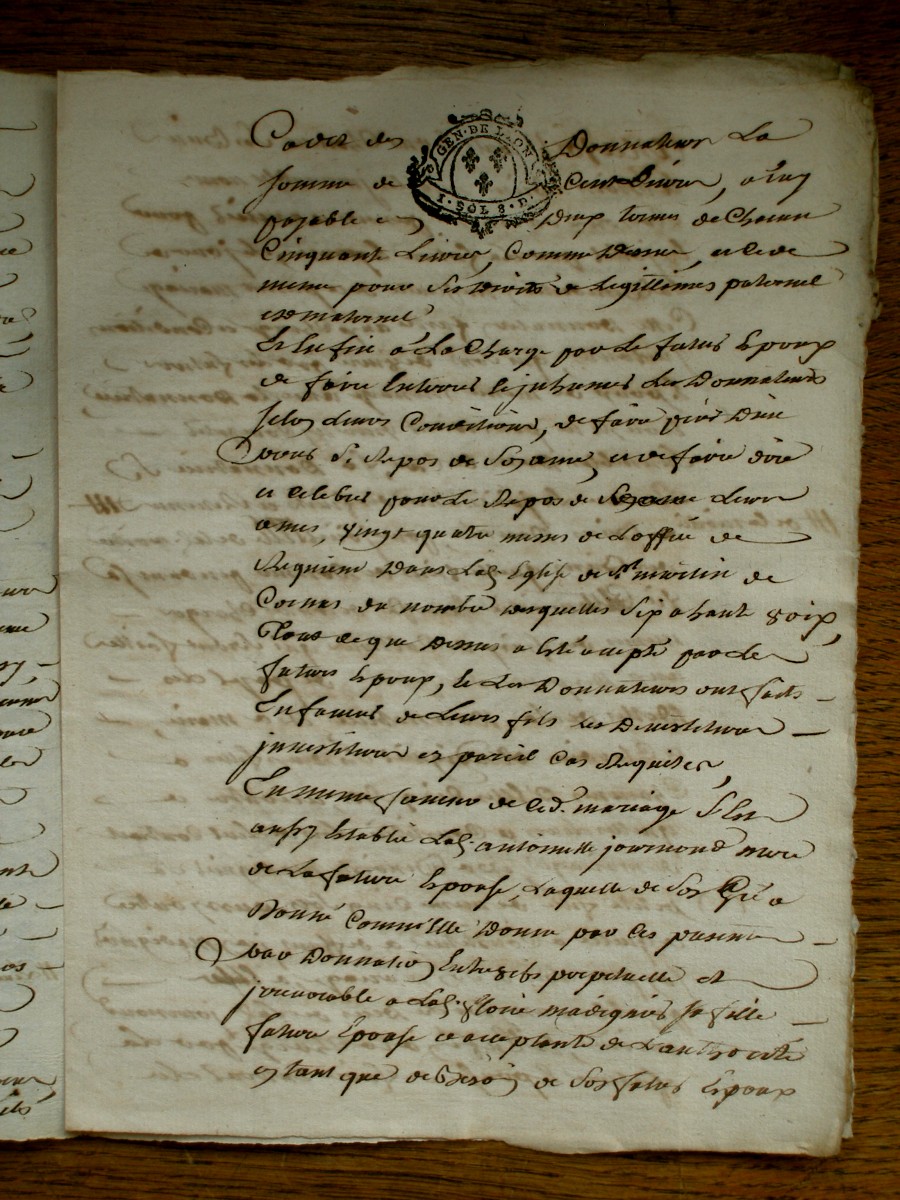 GEN·DE LYON
1·SOL 8·D·
Cadet des Donnateurs La
somme de Cent Livres, a luy
payable en Deux termes de Chacun
Cinquante Livres, Comme Dessus, et Ce de
meme pour ses droits de Legittimes paternel
et maternel
Et Enfin a La Charge par Le futur Epoux
de faire Enterrer et inhumer Les Donnateurs
selon Leurs Conditions, de faire prier Dieu
pour Le Repos de Ame, et de faire dire
et Celebrer pour Le Repos de Leurs
ames, vingt quatre messes de Loffice de
Requiem Dans Lad. Eglise de St martin de
Cornas du nombre desquelles Six a haute voix,
Tout Ce que Dessus a Esté accepté par Le
futur Epoux, et Les Donnateurs ont faits
En faveur de Leurs fils Les Devestitures
jnvestitures en pareil Cas Requises,
En meme faveur de Ced. mariage S'Est
aussy Establie Lad. antoinette journoud mere
de La future Epouse, Laquelle de Son Gré a
Donné Comme Elle Donne par Ces presentes
par Donnation Entrevifs perpetuelle et
jrrevocable a Lad. madignier sa fille
future Epouse acceptante de L'authorité
en tant que de Besoin de Son futur Epoux